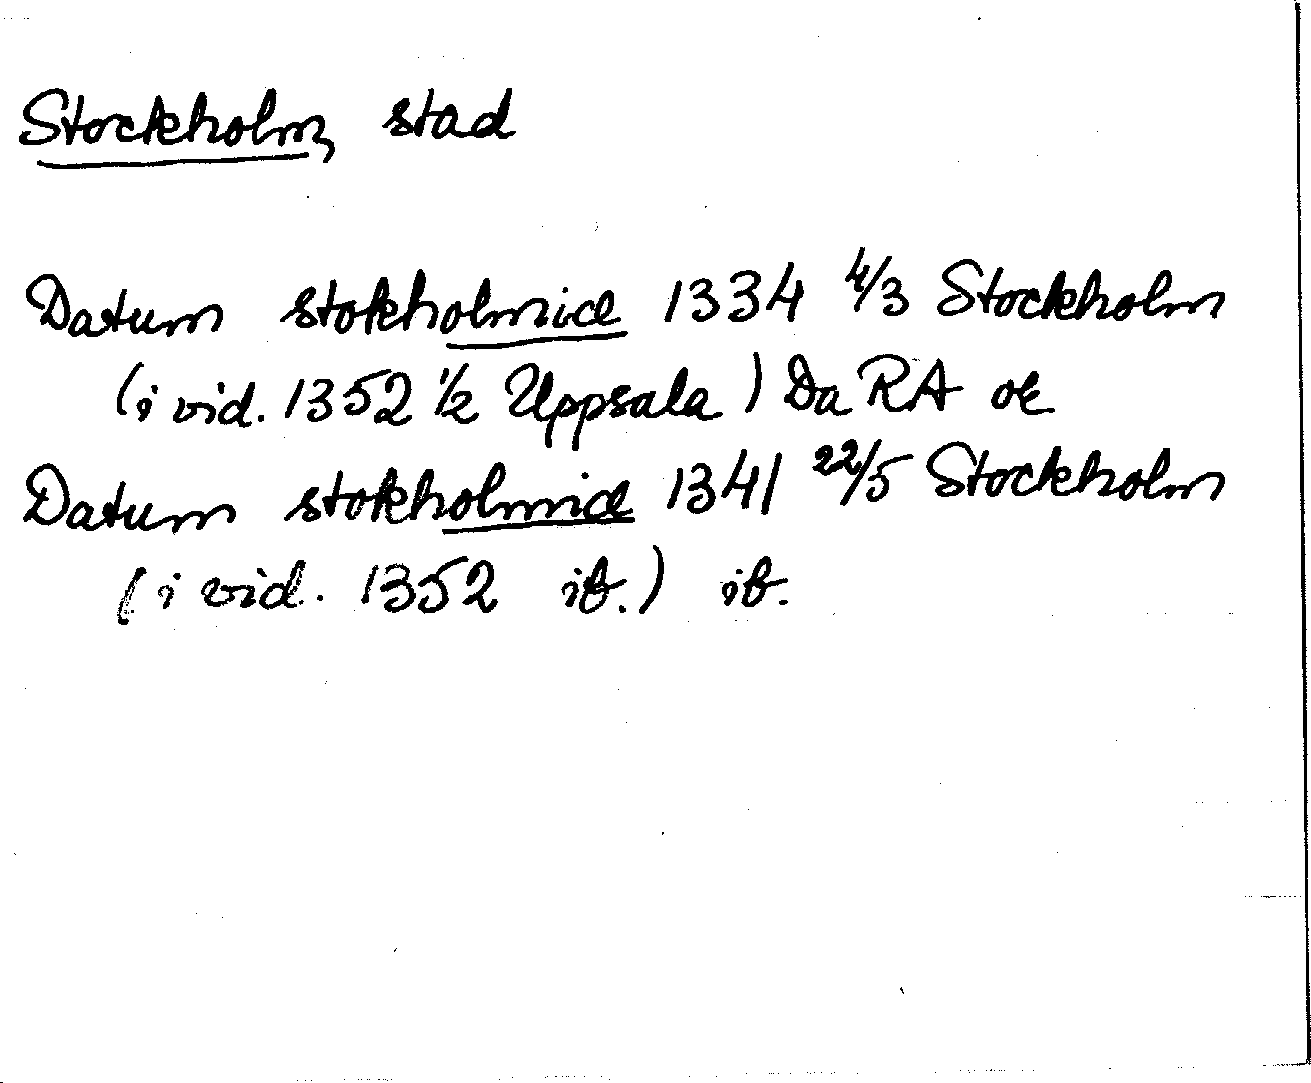 Stockholm, stad
Datum stokholmice 1334 4/3 Stockholm
(i vid. 1352 1/2 Uppsala) Da RA or
Datum stokholmice 1341 22/5 Stockholm
(i vid. 1352 ib.) ib.